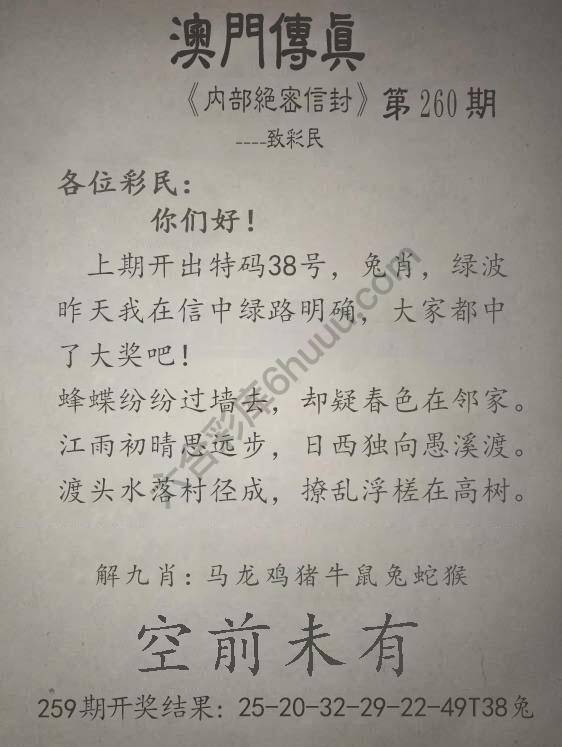 澳門傳真
《内部絕密信封》第260期
----致彩民
各位彩民：
你们好！
上期开出特码38号，兔肖，绿波
昨天我在信中绿路明确，大家都中
了大奖吧！
蜂蝶纷纷过墙去，却疑春色在邻家。
江雨初晴思远步，日西独向愚溪渡。
渡头水落村径成，撩乱浮槎在高树。
解九肖：马龙鸡猪牛鼠兔蛇猴
空前未有
259期开奖结果：25-20-32-29-22-49T38兔
六合彩库6huuu.com